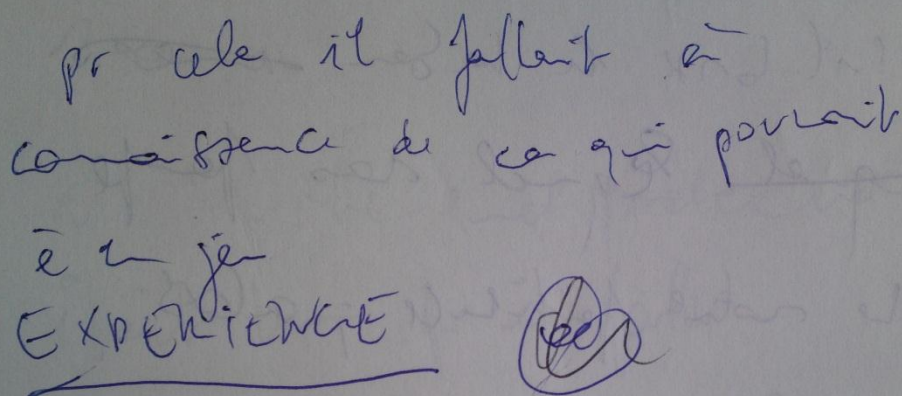 pr cela il fallait ā
connaissance de ce qui pouvait
ē un jeu
EXPERIENCE